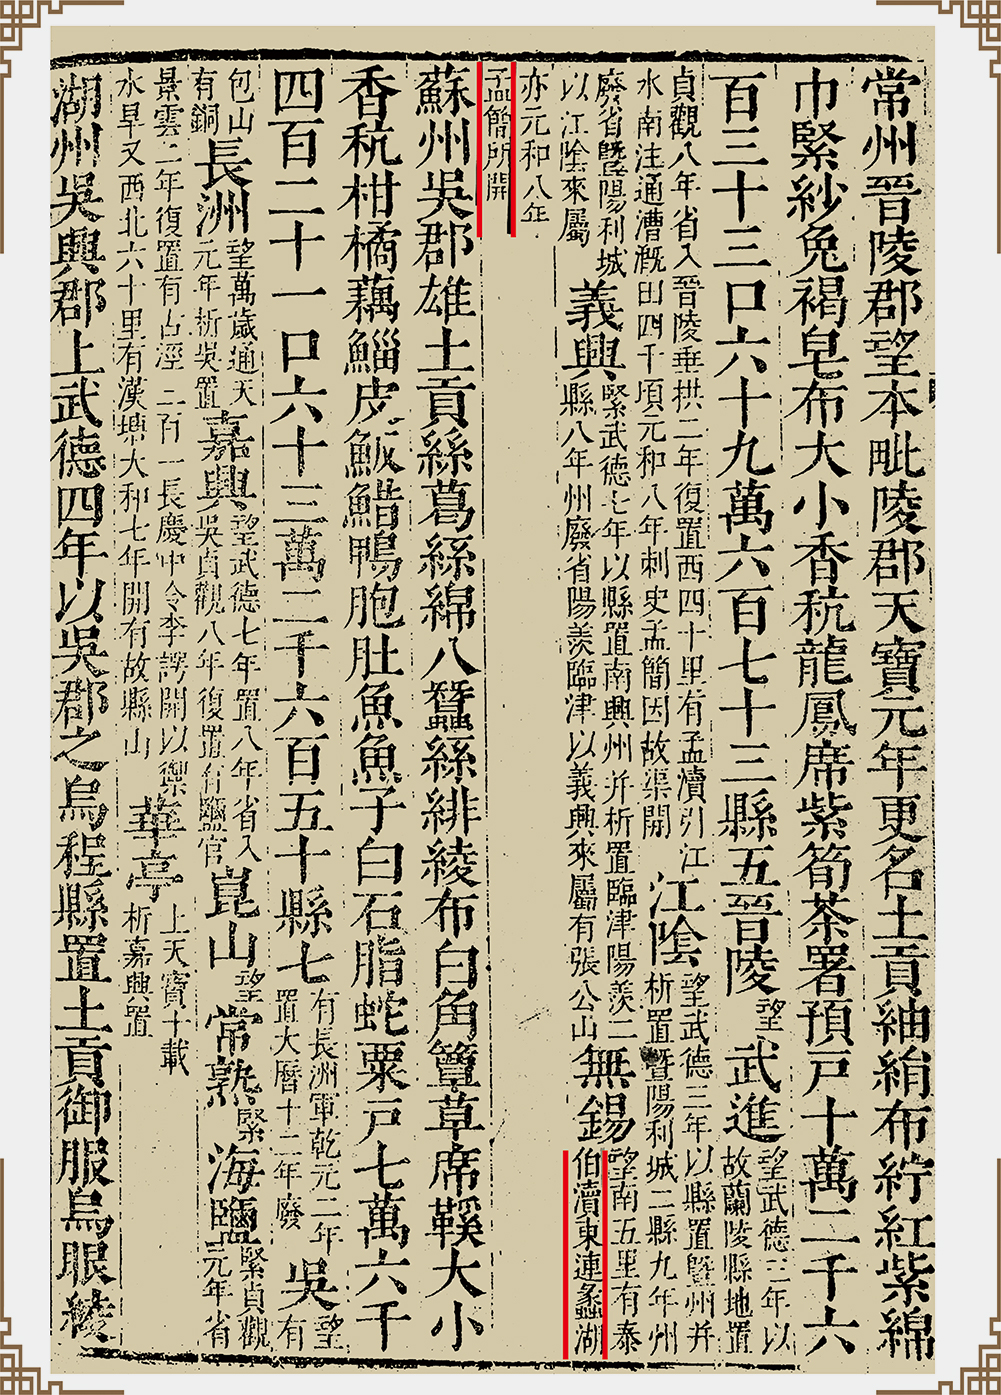 常州晉陵郡望本毗陵郡天寶元年更名土貢紬絹布紵紅紫綿
巾緊紗兔褐皂布大小香秔龍鳳席紫筍茶署預戶十萬二千六
百三十三口六十九萬六百七十三縣五晉陵望武進望武德三年以故蘭陵縣地置
貞觀八年省入晉陵垂拱二年復置西四十里有孟瀆引江水南注通漕溉田四千頃元和八年刺史孟簡因故渠開江陰望武德三年以縣置暨州并析置暨陽利城二縣九年州
廢省暨陽利城以江陰來屬義興緊武德七年以縣置南興州并析置臨津陽羨二縣八年州廢省陽羨臨津以義興來屬有張公山無錫望南五里有泰伯瀆東連蠡湖
亦元和八年孟簡所開
蘇州吳郡雄土貢絲葛絲綿八蠶絲緋綾布白角簟草席鞵大小
香秔柑橘藕鯔皮魬䱜鴨胞肚魚魚子白石脂蛇粟戶七萬六千
四百二十一口六十三萬二千六百五十縣七有長洲軍乾元二年置大曆十二年廢吳望有
包山有銅長洲望萬歲通天元年析吳置嘉興望武德七年置八年省入吳貞觀八年復置有鹽官崑山望常熟緊海鹽緊貞觀元年省
景雲二年復置有古涇三百一長慶中令李諤開以禦水旱又西北六十里有漢塘大和七年開有故縣山華亭上天寶十載析嘉興置
湖州吳興郡上武德四年以吳郡之烏程縣置土貢御服烏眼綾